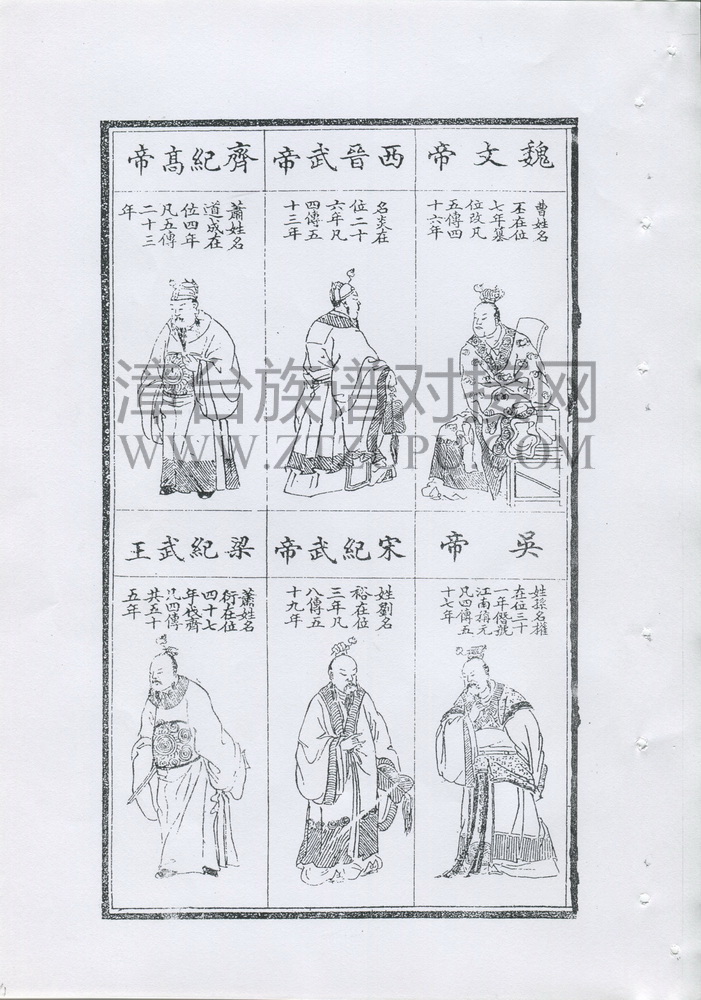 魏文帝
曹姓名
丕在位
七年墓
位改凡
五傳四
十六年
西晉武帝
名炎在
位二十
六年凡
四傳五
十三年
齊紀高帝
蕭姓名
道成在
位四年
凡五傳
二十三
年
吳帝
姓孫名權
在位三十
一年僭號
江南稱元
凡四傳五
十七年
宋紀武帝
姓劉名
裕在位
三年凡
八傳五
十九年
梁紀武王
蕭姓名
衍在位
四十七
年伐齊
凡四傳
共五十
五年
漳台族谱对接网
WWW.ZTZUPU.COM